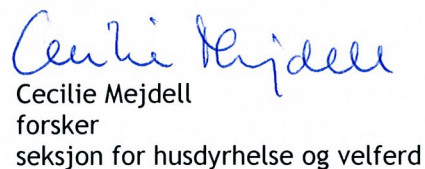 Cecilie Mejdell
Cecilie Mejdell
forsker
seksjon for husdyrhelse og velferd